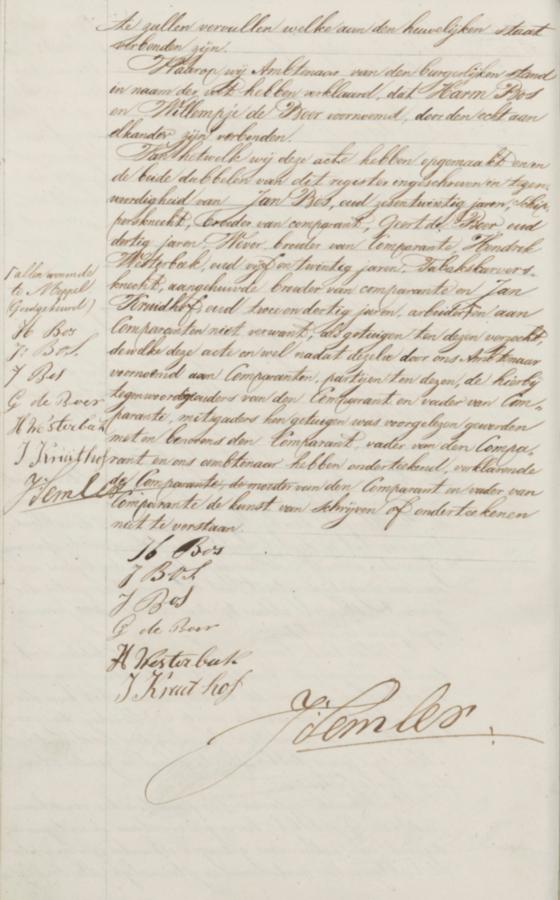 te zullen vervullen welke aan den huwelijken staat
verbonden zijn.
Waarop wij Ambtenaar van den burgerlijken stand
in naam der wet hebben verklaard, dat Harm Bos
en Willempje de Boer voornoemd, door den echt aan
elkander zijn verbonden.
Van hetwelk wij deze acte hebben opgemaakt en in
de beide dubbelen van dit register ingeschreven in tegen-
woordigheid van Jan Bos, oud zesentwintig jaren, schip-
persknecht, broeder van comparant, Geert de Boer, oud
dertig jaren, Wever, broeder van Comparante, Hendrik
Westerbeek, oud vijf en twintig jaren, Tabakskervers-
knecht, aangehuwde broeder van comparante en Jan
Kruidhof, oud twee en dertig jaren, arbeider en aan
Comparanten niet verwant, als getuigen ten dezen verzocht,
dewelke deze acte en wel nadat dezelve door ons Ambtenaar
voornoemd aan Comparanten, partijen ten dezen, de hierbij
tegenwoordig ouders van den Comparant en vader van Com-
parante, mitsgaders hen getuigen was voorgelezen geworden
met en benevens den Comparant, vader van den Compa-
rant en ons ambtenaar hebben onderteekend, verklarende
de Comparante, de moeder van den Comparant en vader van
Comparante de kunst van schrijven of onderteekenen
niet te verstaan.
allen wonende
te Meppel
(Goedgekeurd)
H Bos
J: Bos.
J Bos
G de Boer
H Westerbeek
J Kruithof
J Semler
H Bos
J BOS.
J Bos
G de Boer
H Westerbeek
J Kruithof
J Semler.